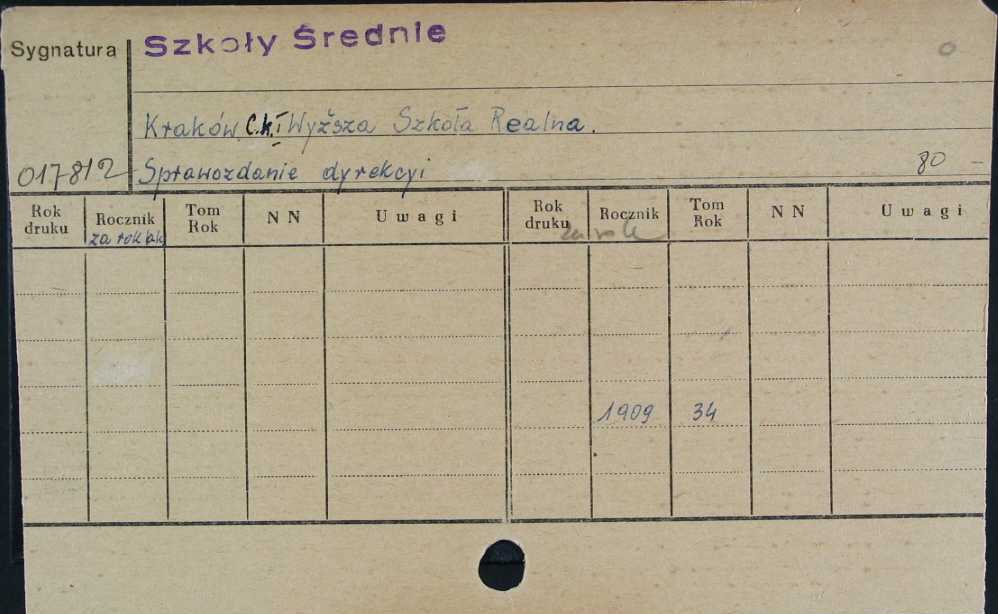 Sygnatura Szkoły Średnie 0
Kraków C.k. I Wyższa Szkoła Realna.
017812 Sprawozdanie dyrekcyi 80 -
Rok druku Rocznik Tom Rok N N Uwagi Rok druku Rocznik Tom Rok N N Uwagi
za rok ak
1909 34